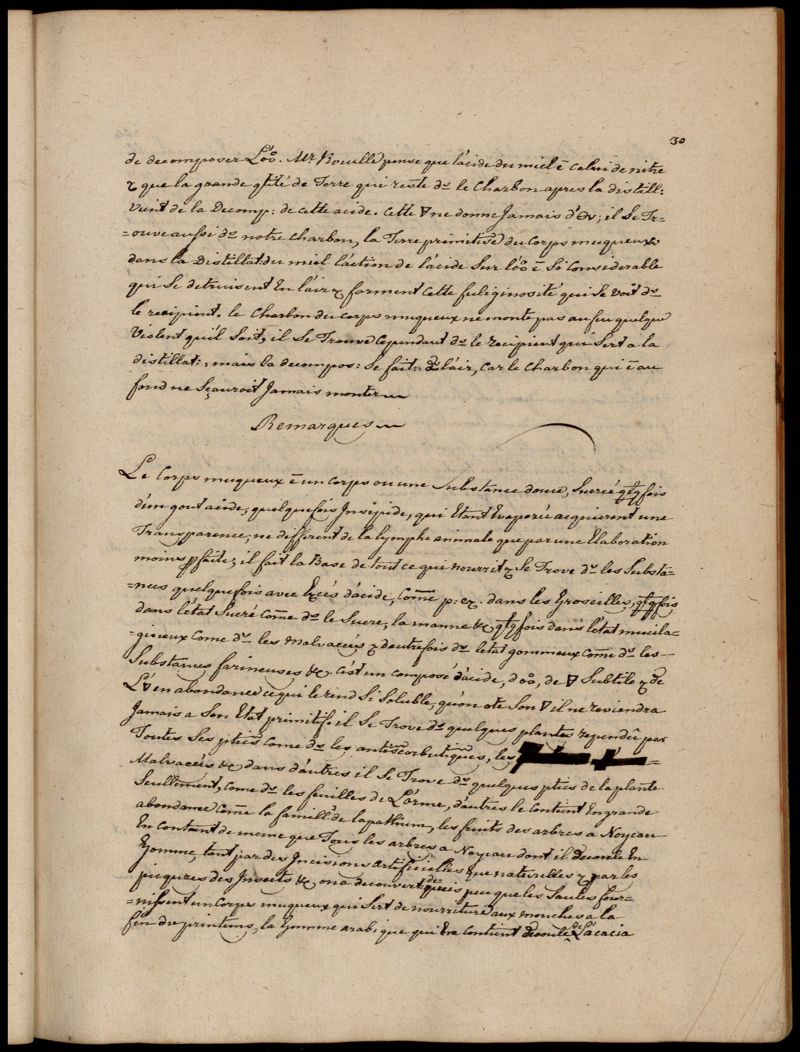 30
de decomposer L'oo. Mr. Rouelle pense que l'acide du miel ē Celui de nitre
& que la grande qtité de Terre qui reste ds le Charbon apres la distill:
vient de la Decomp: de cette acide. Cette ∇ ne donne Jamais d'; il Se Tr-
-ouve aussi ds notre Charbon, la Terre primitive du Corps muqueux
dans la Distillat: du miel l'action de l'acide Sur l'oo ē Si Considerable
qui Se detruisent En l'air & forment Cette fuliginosité qui Se voit ds
le recipient. le Charbon du Corps muqueux ne monte pas au feu quelque
Violent qu'il Soit, il Se Trouve Cependant ds le recipient qui Sert a la
distillat:, mais la decompos: Se fait ds l'air, Car le Charbon qui ē au
fond ne Sçauroit Jamais monter
Remarques
Le Corps muqueux ē un Corps ou une Substance douce, Sucrée qlqfois
d'un gout acide, quelquefois Insipide, qui Etant Evaporée acquierent une
Transparence, ne different de la lymphe animale que par une Elaboration
moins pfaite, il fait la Base de tout ce qui nourrit & Se Trove ds les Substa-
-nces quelquefois avec Excés d'acide, Come p: ex. dans les Groseilles, qlqfois
dans l'état Sucré Come ds le Sucre, la manne &c qlqfois dans l'etat mucila-
-gineux Come ds les Malvacées & d'autrefois ds l'etat gommeux Come ds les
Substances farineuses &c. C'est un composé d'acide, d'oo, de ∇ Subtile & de
L'∇ en abondance ce qui le rend Si Soluble, qu'on ote Son ∇ il ne reviendra
Jamais a Son Etat primitif. il Se Trove ds quelques plantes rependu par
Toutes Ses pties Come ds les antiscorbutiques, les
Malvacées &c dans d'autres il Se Trove ds quelques pties de la plante
Seullement, come ds les feuilles de L'orme, d'autres le Contient En grande
abondance Come la famille de lapathum, les fruits des arbres a Noyeau
En Contient de meme que Tous les arbres a Noyeau dont il decoule En
Gomme, tant par des Incisions artificielles que naturelles & par les
picqures des Insects &c on a decouvert depuis peu que les Saules four-
-nissent un Corps muqueux qui Sert de nourriture aux mouches a la
fin du printems, la Gomme arabique qui En Contient decoule de L'acacia